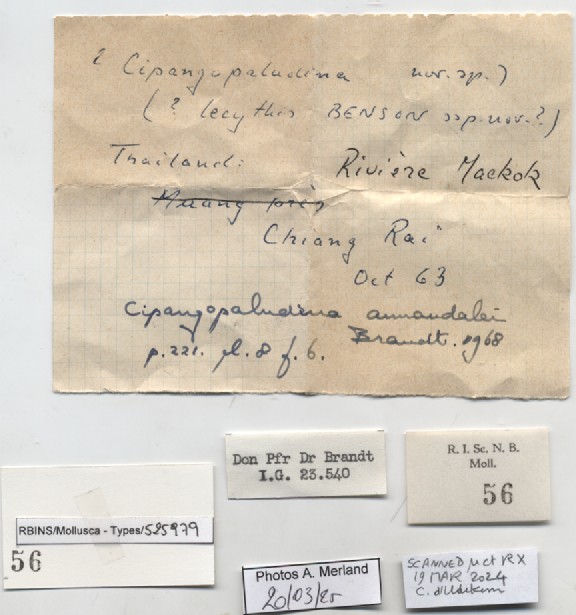 ? Cipangopaludina nov. sp. )
( ? lecythis BENSON ssp. nov. ? )
Thailand: Rivière Maekok
Muang près
Chiang Rai
Oct 63
Cipangopaludina annandalei
Brandt. 1968
p. 221. pl. 8 f. 6.
Don Pfr Dr Brandt
I.G. 23.540
R. I. Sc. N. B.
Moll.
56
RBINS/Mollusca - Types/525979
56
Photos A. Merland
20/03/25
SCANNED µct RX
19 MAR 2024
C.